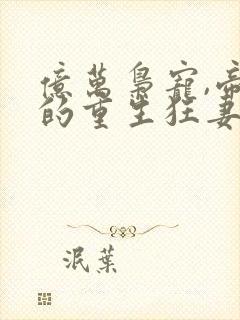 億萬梟寵,帝
的重生狂妻
泯葉